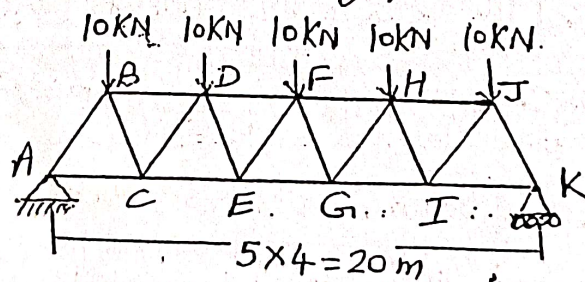 10KN 10KN 10KN 10KN 10KN.
B D F H J
A K
C E. G.. I :.
5×4=20m